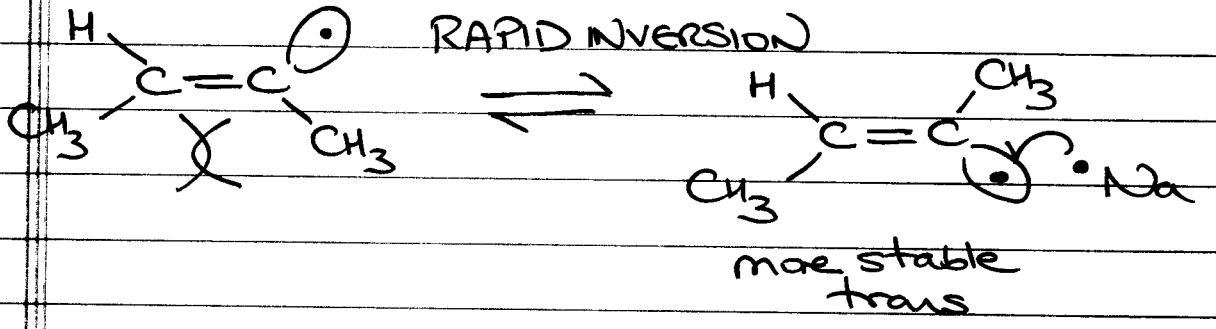 H
C=C
•
CH3
CH3
RAPID INVERSION
H
C=C
CH3
CH3
• • Na
moe stable
trans